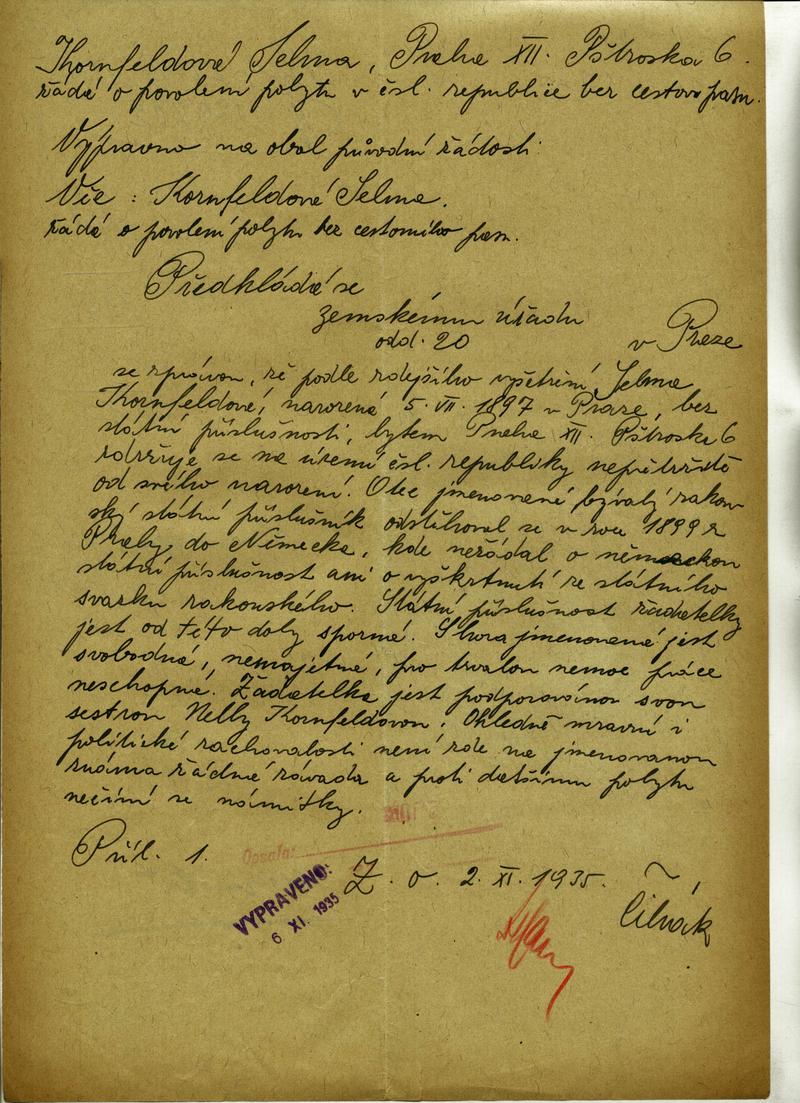 Kornfeldová Selma, Praha XII. Pštroska 6.
žádá o povolení pobytu v čsl. republice bez cestov. pasu.
Výpravno na obal původní žádosti:
Věc : Kornfeldová Selma.
žádá o povolení pobytu bez cestovního pasu.
Předkládá se
zemskému úřadu
odd. 20 v Praze
se zprávou, že podle zdejšího vyšetření Selma
Kornfeldová, narozená 5. VII. 1897 v Praze, bez
státní příslušnosti, bytem Praha XII. Pštroska 6
zdržuje se na území čsl. republiky nepřetržitě
od svého narození. Otec jmenované bývalý rakou
ský státní příslušník odstěhoval se v roce 1899 z
Prahy do Německa, kde nežádal o německou
státní příslušnost ani o vyškrtnutí ze státního
svazku rakouského. Státní příslušnost žadatelky
jest od této doby sporná. Shora jmenovaná jest
svobodná, nemajetná, pro trvalou nemoc práce
neschopná. Žadatelka jest podporována svou
sestrou Nelly Kornfeldovou. Ohledně mravní i
politické zachovalosti není zde na jmenovanou
známa žádná závada a proti dalšímu pobytu
nečiní se námitky.
Příl. 1.
Dosalo:
VYPRAVENO:
6 XI. 1935
Z. o. 2. XI. 1935.